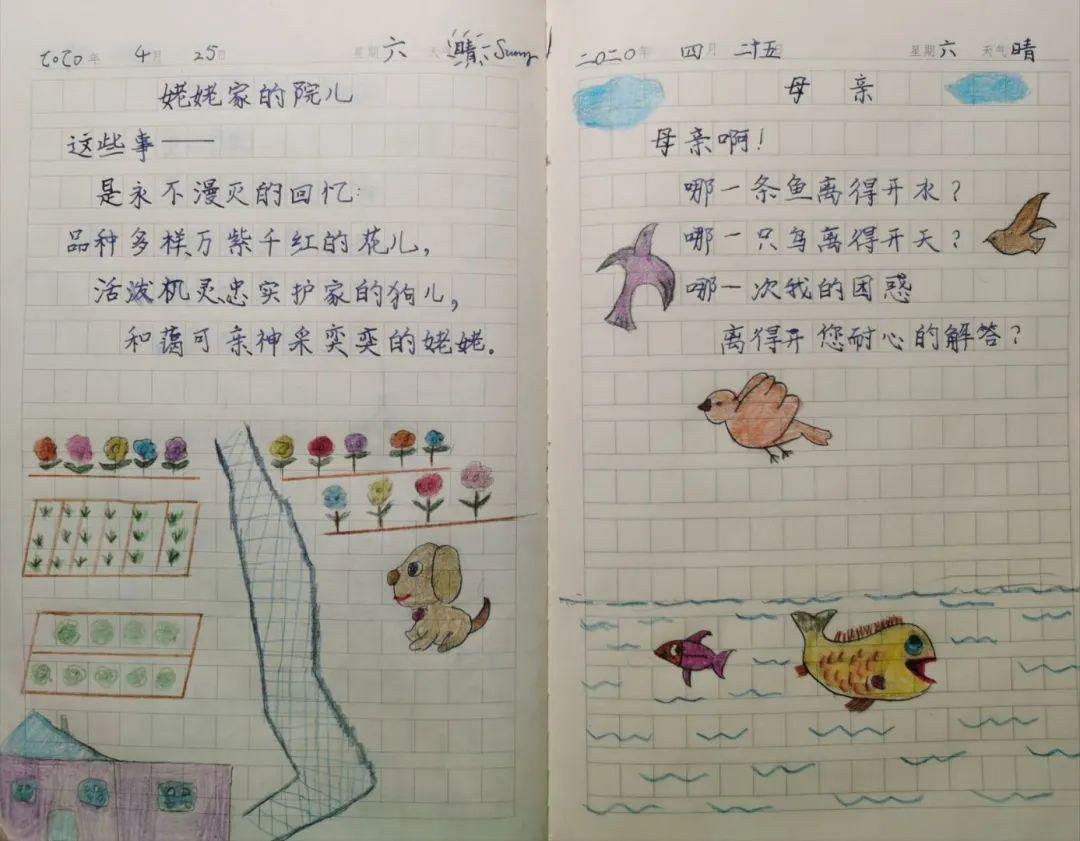 2020年 4月 25日 星期六 天气晴 Sunny
姥姥家的院儿
这些事——
是永不漫灭的回忆:
品种多样、万紫千红的花儿,
活泼机灵、忠实护家的狗儿,
和蔼可亲神采奕奕的姥姥.
二〇二〇年 四月 二十五日 星期六 天气晴
母 亲
母亲啊!
哪一条鱼离得开水?
哪一只鸟离得开天?
哪一次我的困惑
离得开您耐心的解答?